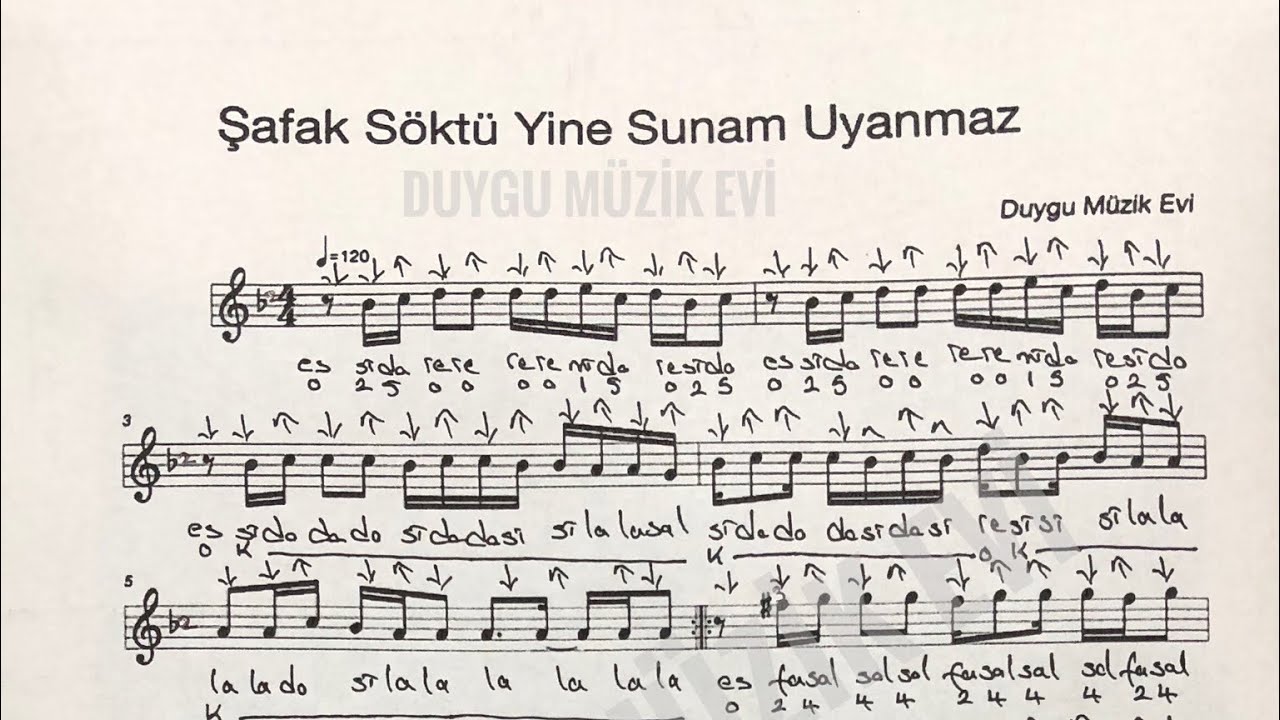 Şafak Söktü Yine Sunam Uyanmaz
DUYGU MÜZİK EVİ
Duygu Müzik Evi
=120
b2 4/4
es sido rere reremido resido es sido rere reremido resido
0 25 00 0015 025 0 25 00 0015 025
3
b2
es sido dodo sidodosi silalasol sidodo dosidosi resisi silala
0 K K 0 K
5
b2 #3
lalado silala la la lala es fasol solsol fasolsol solfasol
K 0 24 44 244 424
MÜZİK EVİ